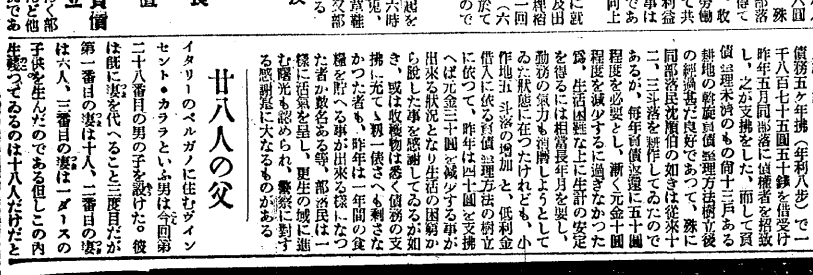 債務五ケ年拂（年利八步）で一
千八百七十五圓五十錢を借受け
昨年五月同部落に債權者を招致
し、之が支拂をした、而して負
債整理未濟のもの尙十三戶ある
耕地の斡旋負債整理方法樹立後
の經過甚だ良好であつて、殊に
同部落民沈順伯の如きは從來十
二、三斗落を耕作してゐたので
あるが、每年負債返還に五十圓
程度を必要とし、漸く元金十圓
程度を減少するに過ぎなかつた
爲、生活困難な上に生計の安定
を得るには相當長年月を要し、
勤務の氣力も消磨しようとして
ゐた狀態に在つたけれども、小
作地五 斗落の增加 と、低利金
借入に依る負債 整理方法の樹立
に依つて、昨年は四十圓を支拂
へば元金三十圓を減少する事が
出來る狀況となり生活の困窮か
ら脫した事を感謝してゐるが如
き、或は收穫物は悉く債務の支
拂に充て、籾一俵さへも剩さな
かつた者も、昨年は一年間の食
糧を貯へる事が出來る樣になつ
た者が數名ある等、部落民は一
樣に活氣を呈し、更生の域に進
む曙光も認められ、警察に對す
る感謝寔に大なるものがある
廿八人の父
イタリーのベルガノに住むヴイン
セント・カララといふ男は今回第
二十八番目の男の子を設けた。彼
は旣に妻を代へること三度目だが
第一番目の妻は十人、二番目の妻
は六人、三番目の妻は一ダースの
子供を生んだのである但しこの內
生殘つてゐるのは十八人だけだと